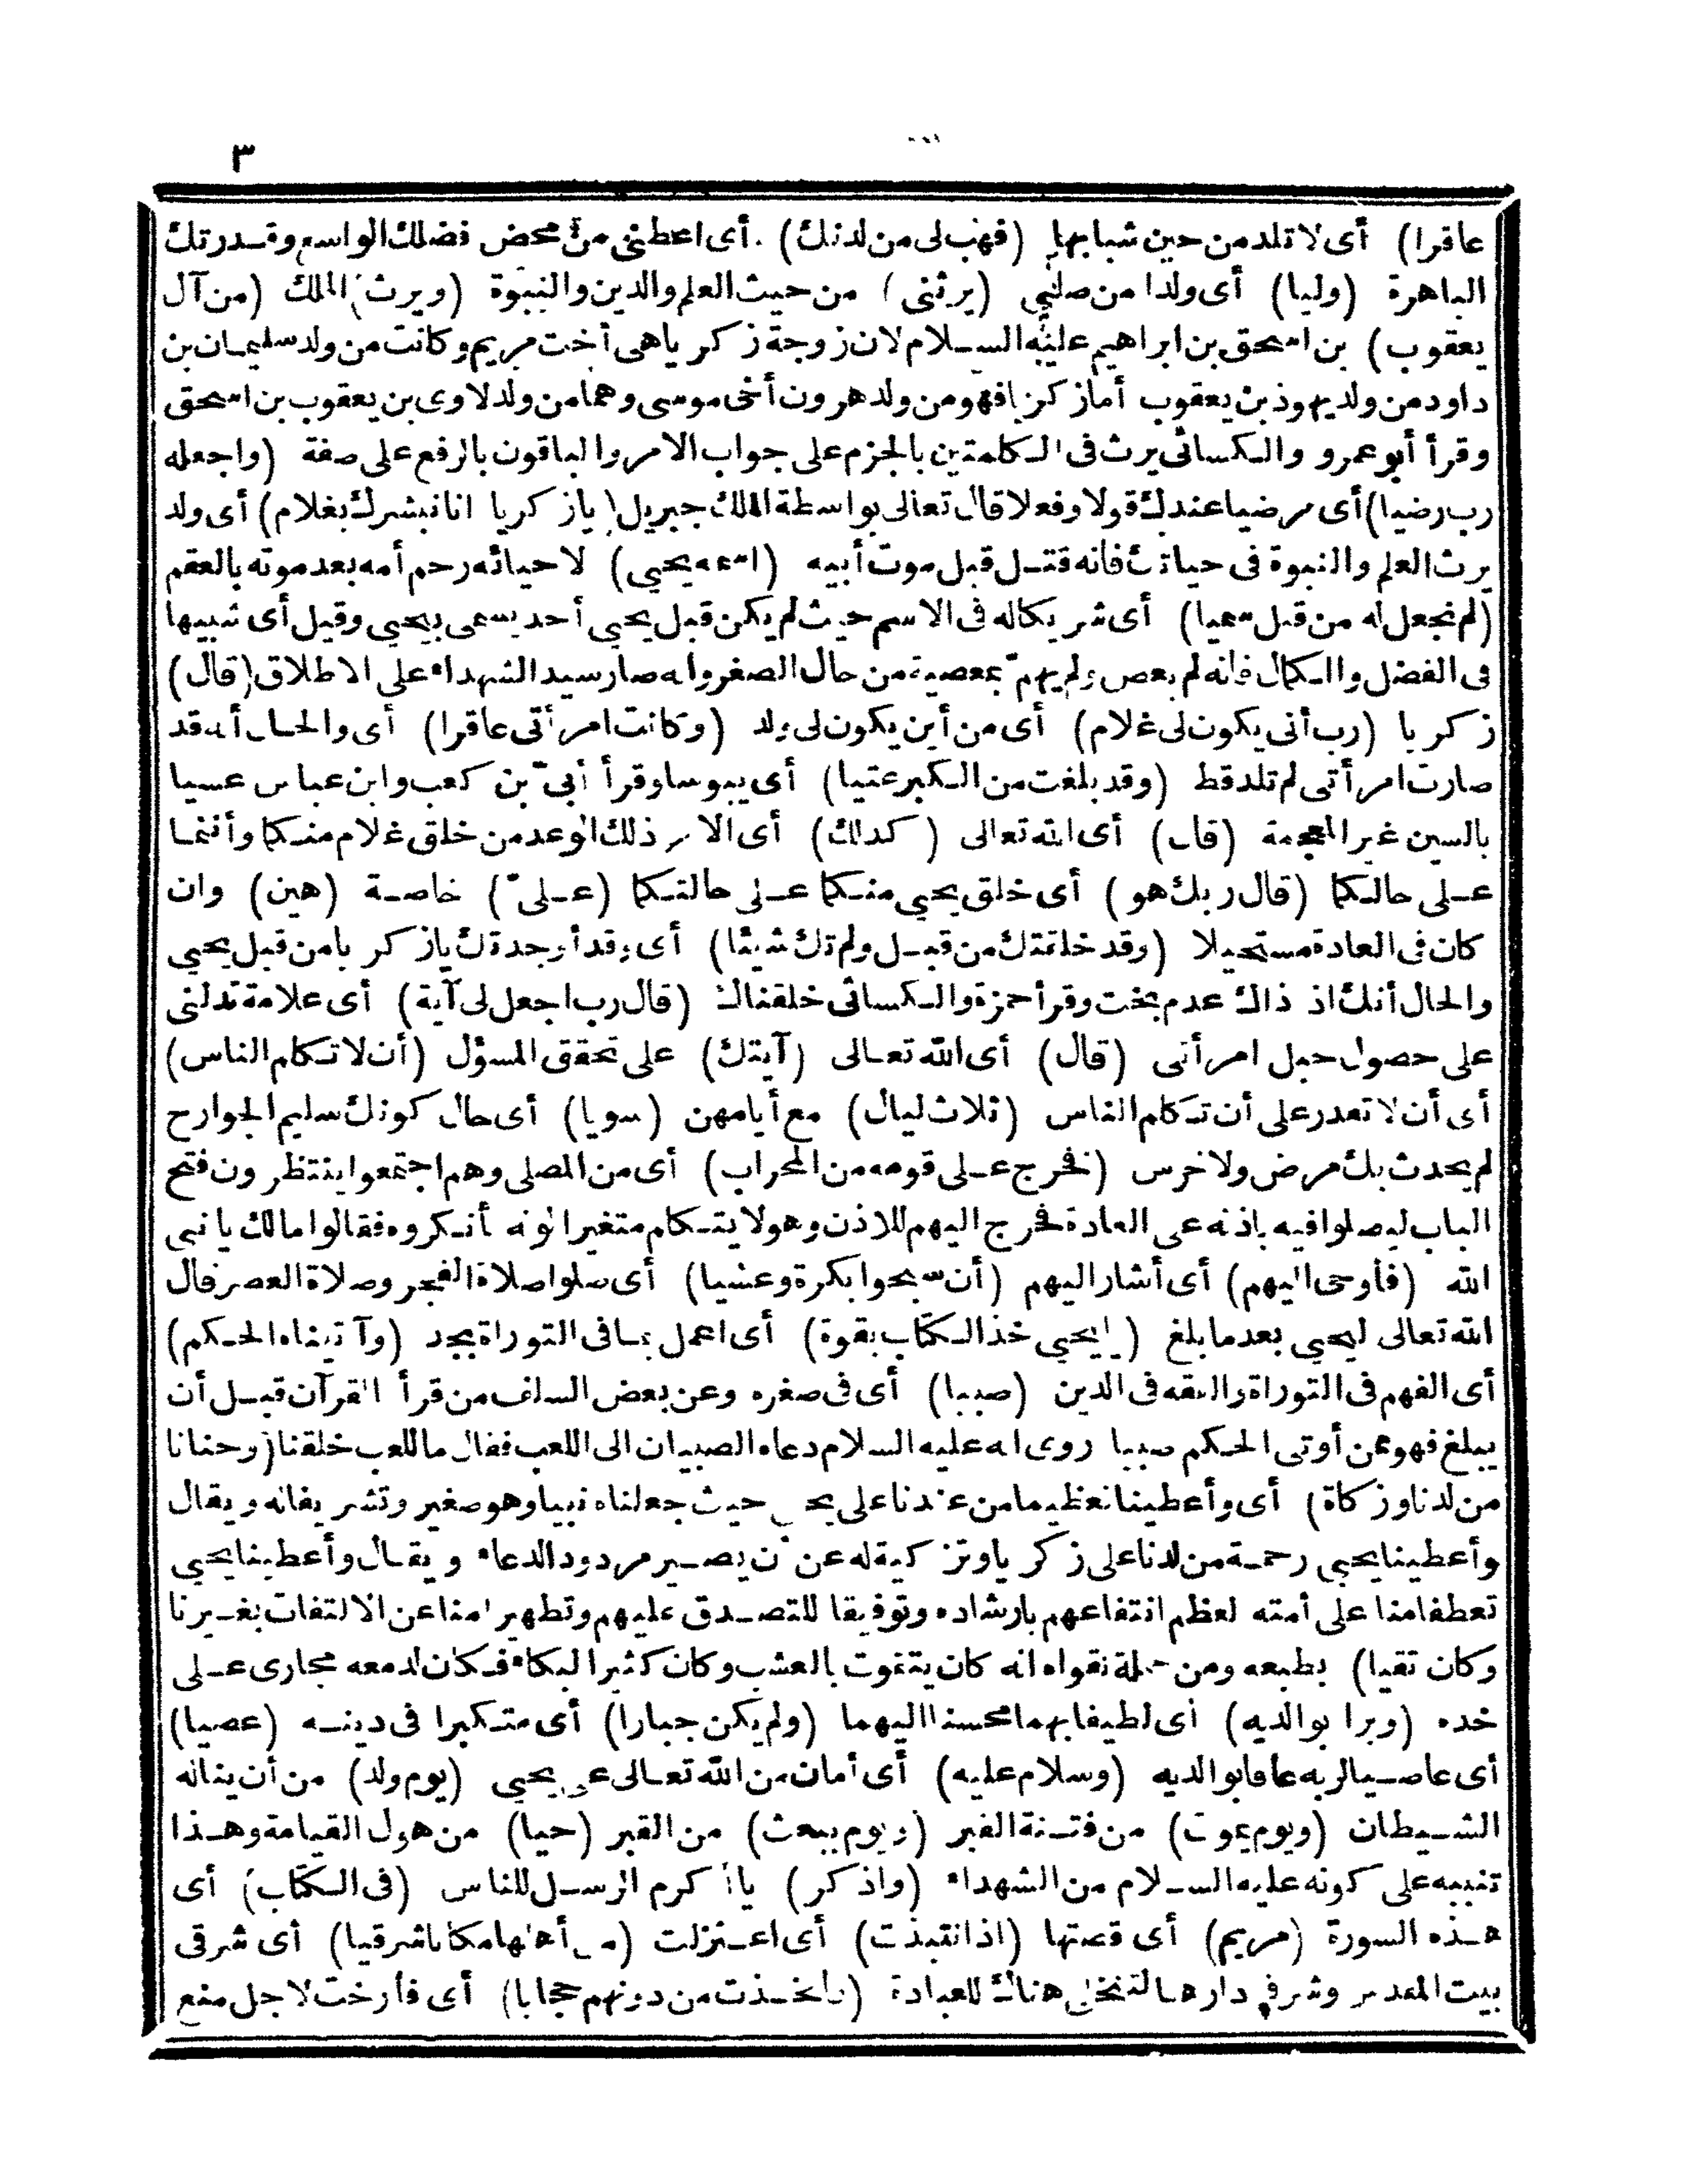 ٣
عاقرا) أى لا تلد من حين شبابها (فهب لى من لدنك) أى اعطنى من محض فضلك الواسع وقدرتك
الباهرة (وليا) أى ولدا من صلبى (يرثنى) من حيث العلم والدين والنبوة (ويرث) الملك (من آل
يعقوب) بن اسحق بن ابراهيم عليه السلام لان زوجة زكريا هى أخت مريم وكانت من ولد سليمان بن
داود من ولد يهوذ بن يعقوب أما زكريا فهو من ولد هرون أخى موسى وهما من ولد لاوى بن يعقوب بن اسحق
وقرأ أبو عمرو والكسائى يرث فى الكلمتين بالجزم على جواب الامر والباقون بالرفع على صفة (واجعله
رب رضيا) أى مرضيا عندك قولا وفعلا قال تعالى بواسطة الملك جبريل (يا زكريا انا نبشرك بغلام) أى ولد
يرث العلم والنبوة فى حياتك فانه قتل قبل موت أبيه (اسمه يحيى) لاحيائه رحم أمه بعد موته بالعقم
(لم نجعل له من قبل سميا) أى شريكا له فى الاسم حيث لم يكن قبل يحيى أحد يسمى بيحيى وقيل أى شبيها
فى الفضل والكمال فانه لم يعص ولم يهمّ بمعصية من حال الصغر وانه صار سيد الشهداء على الاطلاق (قال)
زكريا (رب أنى يكون لى غلام) أى من أين يكون لى ولد (وكانت امرأتى عاقرا) أى والحال أنه قد
صارت امرأتى لم تلد قط (وقد بلغت من الكبر عتيا) أى يبوسا وقرأ أبىّ بن كعب وابن عباس عسيا
بالسين غير المعجمة (قال) أى الله تعالى (كذلك) أى الامر ذلك الوعد من خلق غلام منكما وأنتما
على حالكما (قال ربك هو) أى خلق يحيى منكما على حالتكما (علىّ) خاصة (هين) وان
كان فى العادة مستحيلا (وقد خلقتك من قبل ولم تك شيئا) أى وقد أوجدتك يا زكريا من قبل يحيى
والحال أنك اذ ذاك عدم بحت وقرأ حمزة والكسائى خلقناك (قال رب اجعل لى آية) أى علامة تدلنى
على حصول حبل امرأتى (قال) أى الله تعالى (آيتك) على تحقق المسؤل (أن لا تكلم الناس)
أى أن لا تقدر على أن تكلم الناس (ثلاث ليال) مع أيامهن (سويا) أى حال كونك سليم الجوارح
لم يحدث بك مرض ولا خرس (فخرج على قومه من المحراب) أى من المصلى وهم اجتمعوا ينتظرون فتح
الباب ليصلوا فيه باذنه على العادة فخرج اليهم للاذن وهو لا يتكلم متغيرا لونه أنكروه فقالوا مالك يا نبى
الله (فأوحى اليهم) أى أشار اليهم (أن سبحوا بكرة وعشيا) أى صلوا صلاة الفجر وصلاة العصر فقال
الله تعالى ليحيى بعد ما بلغ (يا يحيى خذ الكتاب بقوة) أى اعمل بما فى التوراة بجد (وآتيناه الحكم)
أى الفهم فى التوراة والفقه فى الدين (صبيا) أى فى صغره وعن بعض السلف من قرأ القرآن قبل أن
يبلغ فهو ممن أوتى الحكم صبيا روى انه عليه السلام دعاه الصبيان الى اللعب فقال ما للعب خلقنا (وحنانا
من لدنا وزكاة) أى وأعطينا تعظيما من عندنا على يحيى حيث جعلناه نبيا وهو صغير وتشريفا له ويقال
وأعطينا يحيى رحمة من لدنا على زكريا وتزكية له عن أن يصير مردود الدعاء ويقال وأعطينا يحيى
تعطفا منا على أمته لعظم انتفاعهم بارشاده وتوفيقا للتصدق عليهم وتطهيرا منا عن الالتفات بغيرنا
وكان تقيا) بطبعه ومن جملة تقواه انه كان يتقوت بالعشب وكان كثير البكاء فكان لدمعه مجارى على
خده (وبرا بوالديه) أى لطيفا بهما محسنا اليهما (ولم يكن جبارا) أى متكبرا فى دينه (عصيا)
أى عاصيا لربه عاقا بوالديه (وسلام عليه) أى أمان من الله تعالى على يحيى (يوم ولد) من أن يناله
الشيطان (ويوم يموت) من فتنة القبر (ويوم يبعث) من القبر (حيا) من هول القيامة وهذا
تنبيه على كونه عليه السلام من الشهداء (واذكر) يا أكرم الرسل للناس (فى الكتاب) أى
هذه السورة (مريم) أى قصتها (اذ انتبذت) أى اعتزلت (من أهلها مكانا شرقيا) أى شرقى
بيت المقدس وشرقى دارها لتتخلى هناك للعبادة (فاتخذت من دونهم حجابا) أى فأرخت لاجل منع